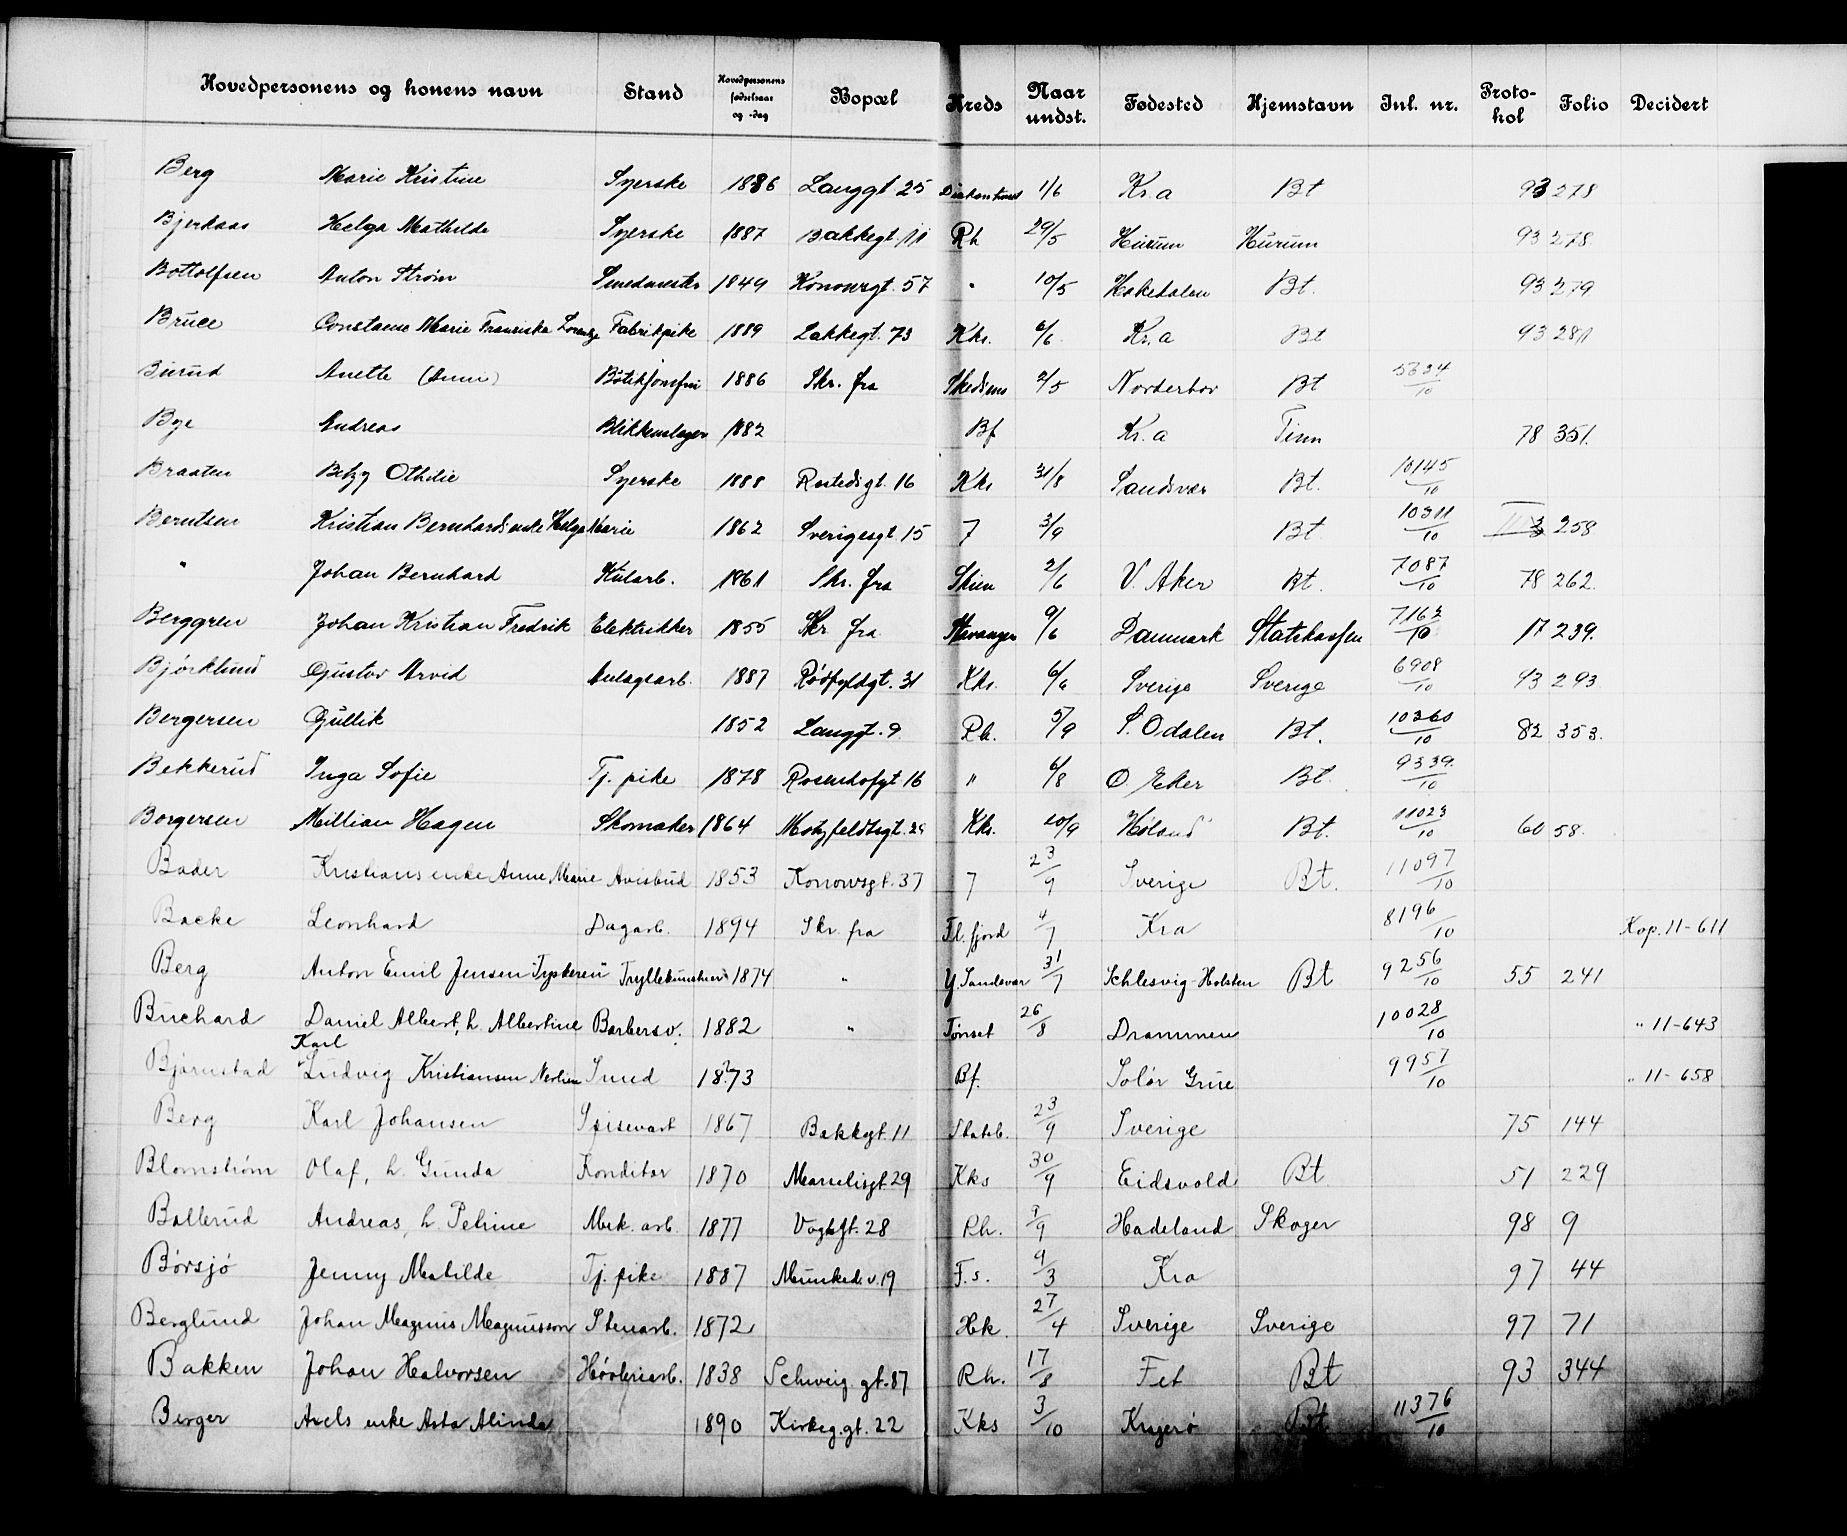 Hovedpersonens og konens navn Stand Hovedpersonens fødselsaar og -dag Bopæl Kreds Naar undst. Fødested Hjemstavn Inl. nr. Protokol Folio Decidert
Berg Marie Kristine Syerske 1886 Langgt 25 Diakonhuset 1/6 Kr.a Bt 93 278
Bjerkaas Helga Mathilde Syerske 1887 Bakkegt. 11 Rh 29/5 Hurum Hurum 93 278
Bottolfsen Anton Strøm Smedmester 1849 Konowsgt. 57 " 10/5 Hakedalen Bt. 93 279
Bruce Constance Marie Franciska Lorenze Fabrikpike 1889 Lakkegt. 73 Kks. 6/6 Kr.a Bt 93 281
Burud Anette (Anni) Butikjomfru 1886 Skr. fra Skedsmo 2/5 Norderhov Bt 5624/10
Bye Andreas Blikkenslager 1882 Bf Kr.a Tinn 78 351.
Braaten Betzy Othilie Syerske 1888 Rostedsgt. 16 Kks 31/8 Sandsvær Bt. 10145/10
Berntsen Kristian Bernhards enke Helga Marie 1862 Sverigesgt. 15 7 3/9 Bt. 10311/10 258
" Johan Bernhard Kularb. 1861 Skr. fra Skien 2/6 V. Aker Bt. 7087/10 78 262
Berggren Johan Kristian Fredrik Elektrikker 1855 Skr fra Stavanger 9/6 Danmark Statskassen 7162/10 17 239.
Bjørklund Gustav Arvid Anlagsarb. 1887 Rødfyldgt. 31 Kks. 6/6 Sverige Sverige 6908/10 93 293
Bergersen Gullik 1852 Langgt. 9 Rh. 5/9 S. Odalen Bt. 10360/10 82 353.
Bekkerud Inga Sofie Tj. pike 1878 Rosenhofgt 16 " 6/8 Ø. Eker Bt. 9339./10
Borgersen Millian Hagen Skomaker 1864 Motzfeldtsgt. 29 Kks. 20/9 Høland Bt. 11023/10 60 58.
Bader Kristians enke Anne Marie Avisbud 1853 Konowsgt. 37 7 23/9 Sverige Bt. 11097/10
Backe Leonhard Dagarb. 1894 Skr. fra Fl. fjord 4/7 Kra 8196/10 Kop. 11-611
Berg Anton Emil Jensen "Tyskeren" Tryllekunstner 1874 " Y. Sandsvær 31/7 Schlesvig-Holsten Bt 9256/10 55 241
Buchard Daniel Albert, h. Albertine Barbersv. 1882 " Tønset 26/8 Drammen 10028/10 " 11-643
Karl
Bjørnstad Ludvig Kristiansen Nerlien Smed 1873 Bf. Solør Grue 9957/10 " 11-658
Berg Karl Johansen Spisevært 1867 Bakkegt. 11 Statsb. 23/9 Sverige 75 144
Blomstrøm Olaf, h. Gunda Konditor 1870 Maridisgt. 29 Kks 30/9 Eidsvold Bt 51 229
Ballerud Andreas, h. Petrine Mek. arb. 1877 Vogtsgt. 28 Rh. 9/9 Hadeland Skoger 98 9
Børsjø Jenny Matilde Tj. pike 1887 Munkeds. v. 19 F.s. 9/3 Kra 97 44
Berglund Johan Magnus Magnusson Stenarb. 1872 Hk. 27/4 Sverige Sverige 97 71
Bakken Johan Halvorsen Høvleriarb. 1838 Schweig. gt. 87 Rh. 17/8 Fet Bt 93 344
Berger Axels enke Asta Alinda 1890 Kirkeg. gt. 22 Kks 3/10 Kragerø Bt 11376/10